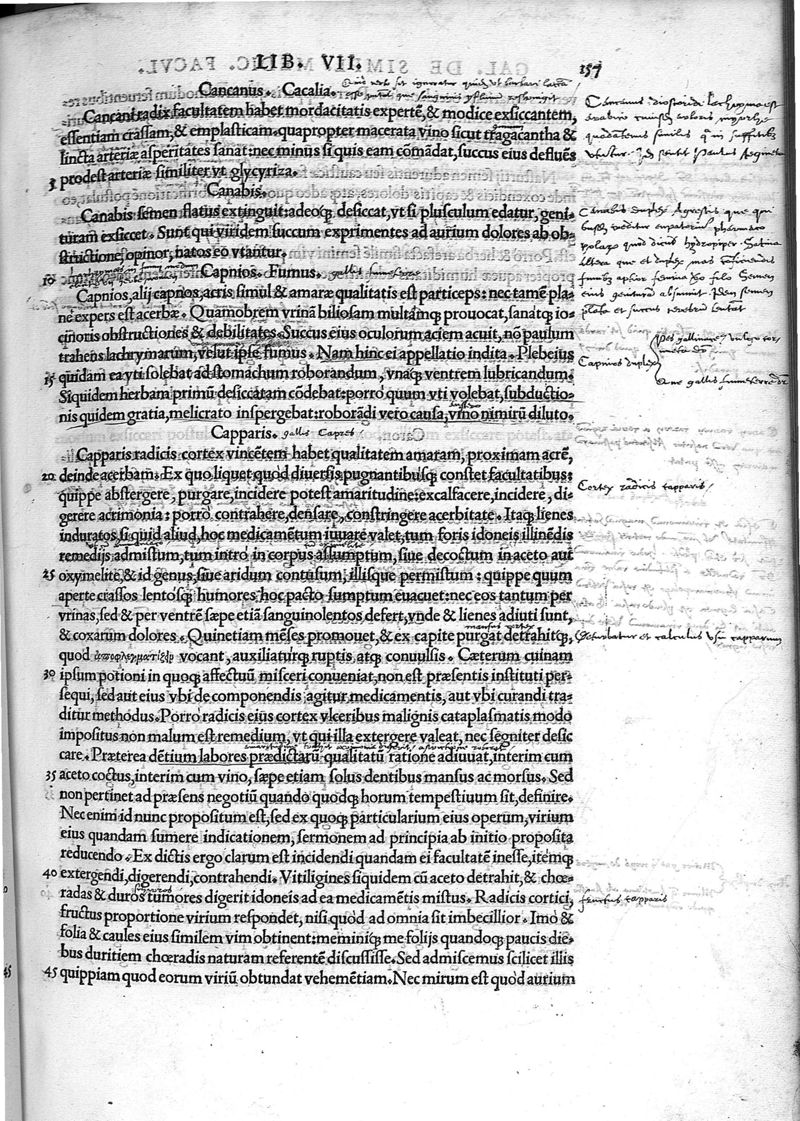 LIB. VII. 157
Cancanus. Cacalia.
Cancani radix facultatem habet mordacitatis expertē, & modice exsiccantem,
essentiam crassam, & emplasticam. quapropter macerata vino sicut tragacantha &
lincta arteriæ asperitates sanat: nec minus si quis eam cōmādat, succus eius defluēs
5 prodest arteriæ similiter vt glycyriza.
Canabis.
Canabis semen flatus extinguit: adeoq̃ desiccat, vt si plusculum edatur, geni-
turam exsiccet. Sunt qui viridem succum exprimentes ad aurium dolores ab ob-
structione, opinor, natos eo vtantur.
10 Capnios. Fumus.
Capnios, alij capnos, acris simul & amaræ qualitatis est particeps: nec tamē pla-
nè expers est acerbæ. Quamobrem vrinā biliosam multāmq̃ prouocat, sanatq̃ io-
cinoris obstructiones & debilitates. Succus eius oculorum aciem acuit, nō paulum
trahens lachrymarum, velut ipse fumus. Nam hinc ei appellatio indita. Plebeius
15 quidam ea yti solebat ad stomachum roborandum, vnaq̃ ventrem lubricandum.
Siquidem herbam primū desiccatam cōdebat: porrò quum vti volebat, subductio-
nis quidem gratia, melicrato inspergebat: roborādi vero causa, vino nimirū diluto.
Capparis. gallis Capres
Capparis radicis cortex vincētem habet qualitatem amaram, proximam acrē,
20 deinde acerbam. Ex quo liquet quòd diuersis pugnantibusq̃ constet facultatibus:
quippe abstergere, purgare, incidere potest amaritudine: excalfacere, incidere, di-
gerere acrimonia: porrò contrahere, densare, constringere acerbitate. Itaq̃ lienes
induratos, si quid aliud, hoc medicamētum iuuare valet, tum foris idoneis illinēdis
remedijs admistum, tum intrò in corpus assumptum, siue decoctum in aceto aut
25 oxymelite, & id genus, siue aridum contusum, illisque permistum: quippe quum
aperte crassos lentosq̃ humores, hoc pacto sumptum euacuet: nec eos tantum per
vrinas, sed & per ventrē sæpe etiā sanguinolentos defert, vnde & lienes adiuti sunt,
& coxarum dolores. Quinetiam mēses promouet, & ex capite purgat detrahitq̃,
quod ἀποφλεγματίζειν vocant, auxiliaturq̃ ruptis atq̃ conuulsis. Cæterum cuinam
30 ipsum potioni in quoq̃ affectuū misceri conueniat, non est præsentis instituti per-
sequi, sed aut eius vbi de componendis agitur medicamentis, aut vbi curandi tra-
ditur methodus. Porrò radicis eius cortex vlceribus malignis cataplasmatis modo
impositus non malum est remedium, vt qui illa extergere valeat, nec segniter desic
care. Præterea dētium labores prædictarū qualitatū ratione adiuuat, interim cum
35 aceto coctus, interim cum vino, sæpe etiam solus dentibus mansus ac morsus. Sed
non pertinet ad præsens negotiū quando quodq̃ horum tempestiuum sit, definire.
Nec enim id nunc propositum est, sed ex quoq̃ particularium eius operum, virium
eius quandam sumere indicationem, sermonem ad principia ab initio proposita
reducendo. Ex dictis ergo clarum est incidendi quandam ei facultatē inesse, itēmq̃
40 extergendi, digerendi, contrahendi. Vitiligines siquidem cū aceto detrahit, & chœ-
radas & duros tumores digerit idoneis ad ea medicamētis mistus. Radicis cortici,
fructus proportione virium respondet, nisi quòd ad omnia sit imbecillior. Imò &
folia & caules eius similem vim obtinent: meminiq̃ me folijs quandoq̃ paucis die-
bus duritiem chœradis naturam referentē discussisse. Sed admiscemus scilicet illis
45 quippiam quod eorum viriū obtundat vehemētiam. Nec mirum est quòd aurium
Capnios duplex
Cortex radicis capparis
fructus capparis